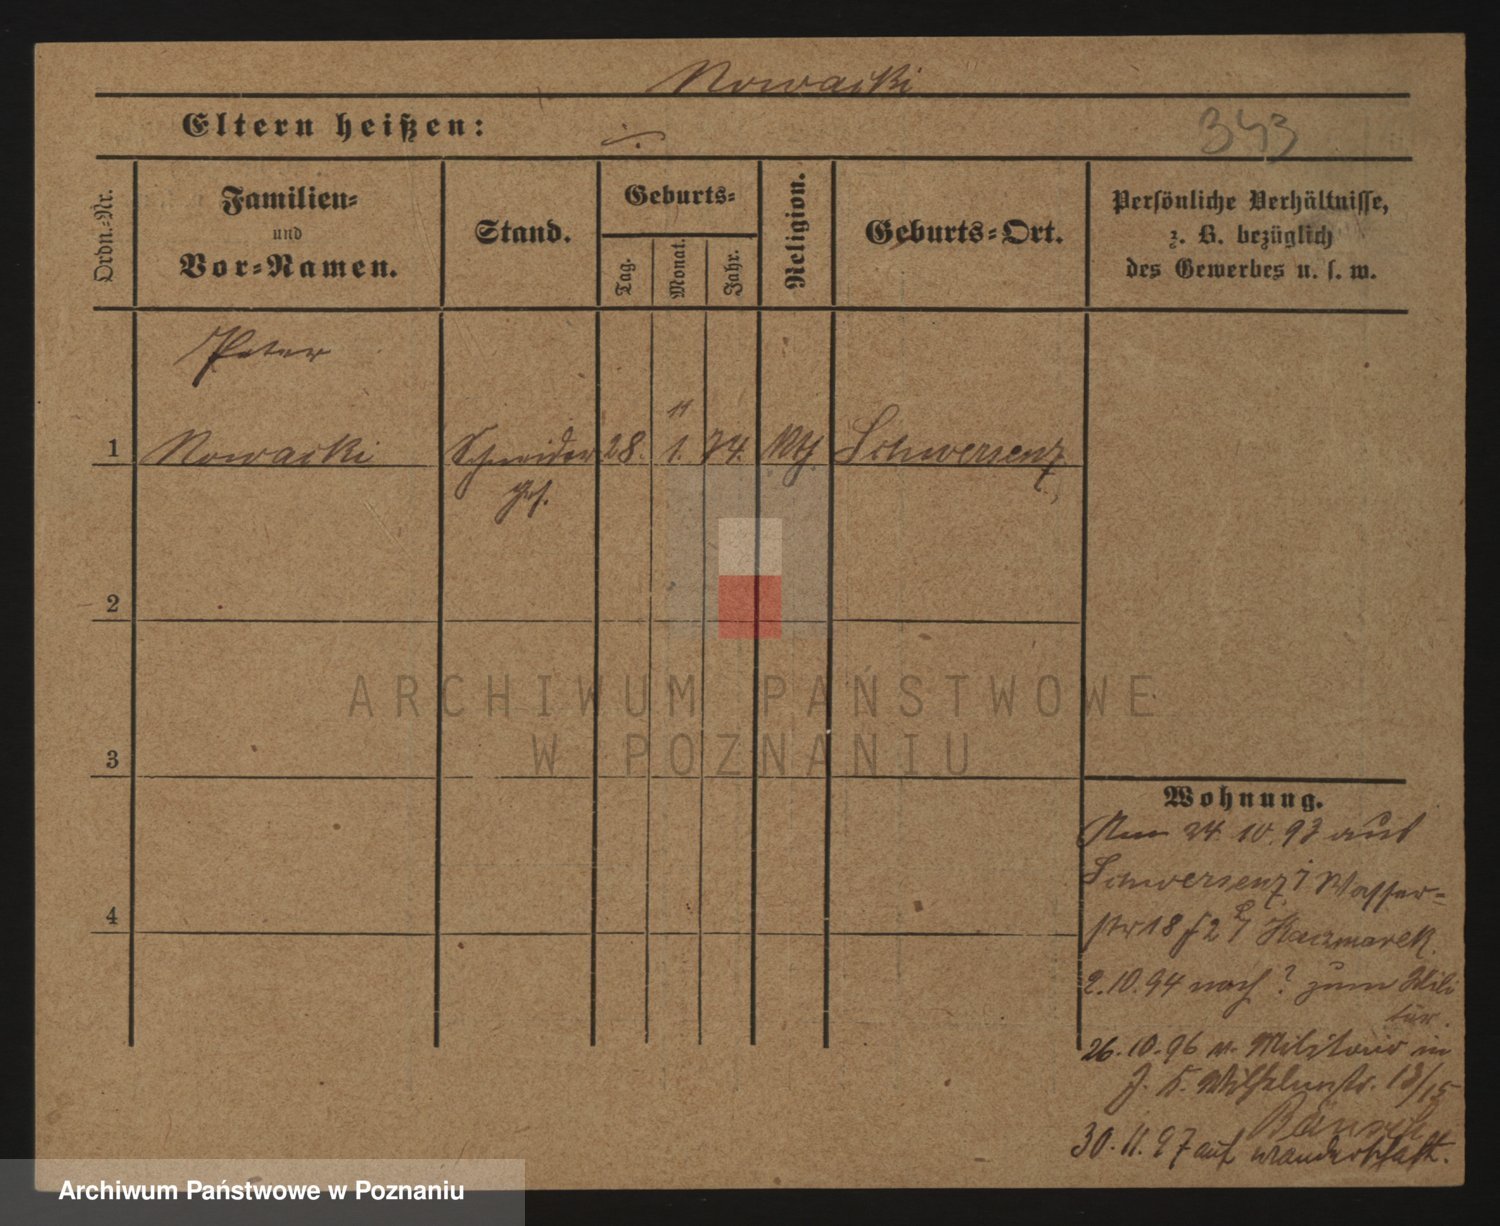 Nowacki
Eltern heißen: ./.
343
Ordn.-Nr.
Familien-
und
Vor-Namen.
Stand.
Geburts-
Tag.
Monat.
Jahr.
Religion.
Geburts-Ort.
Persönliche Verhältnisse,
z. B. bezüglich
des Gewerbes u. s. w.
Peter
11
1 Nowacki Schneider 28. 1. 74. Kth Schwersenz
ges.
2
3
4
ARCHIWUM PAŃSTWOWE
W POZNANIU
Wohnung.
Am 24. 10. 93 aus
Schwersenz Wasser-
str 18 Kaczmarek
2. 10. 94 nach ? zum Mili
tär.
26. 10. 96 v. Militair in
Wilhelmstr. 13/15
30. 11. 97 auf wanderschaft.
Archiwum Państwowe w Poznaniu